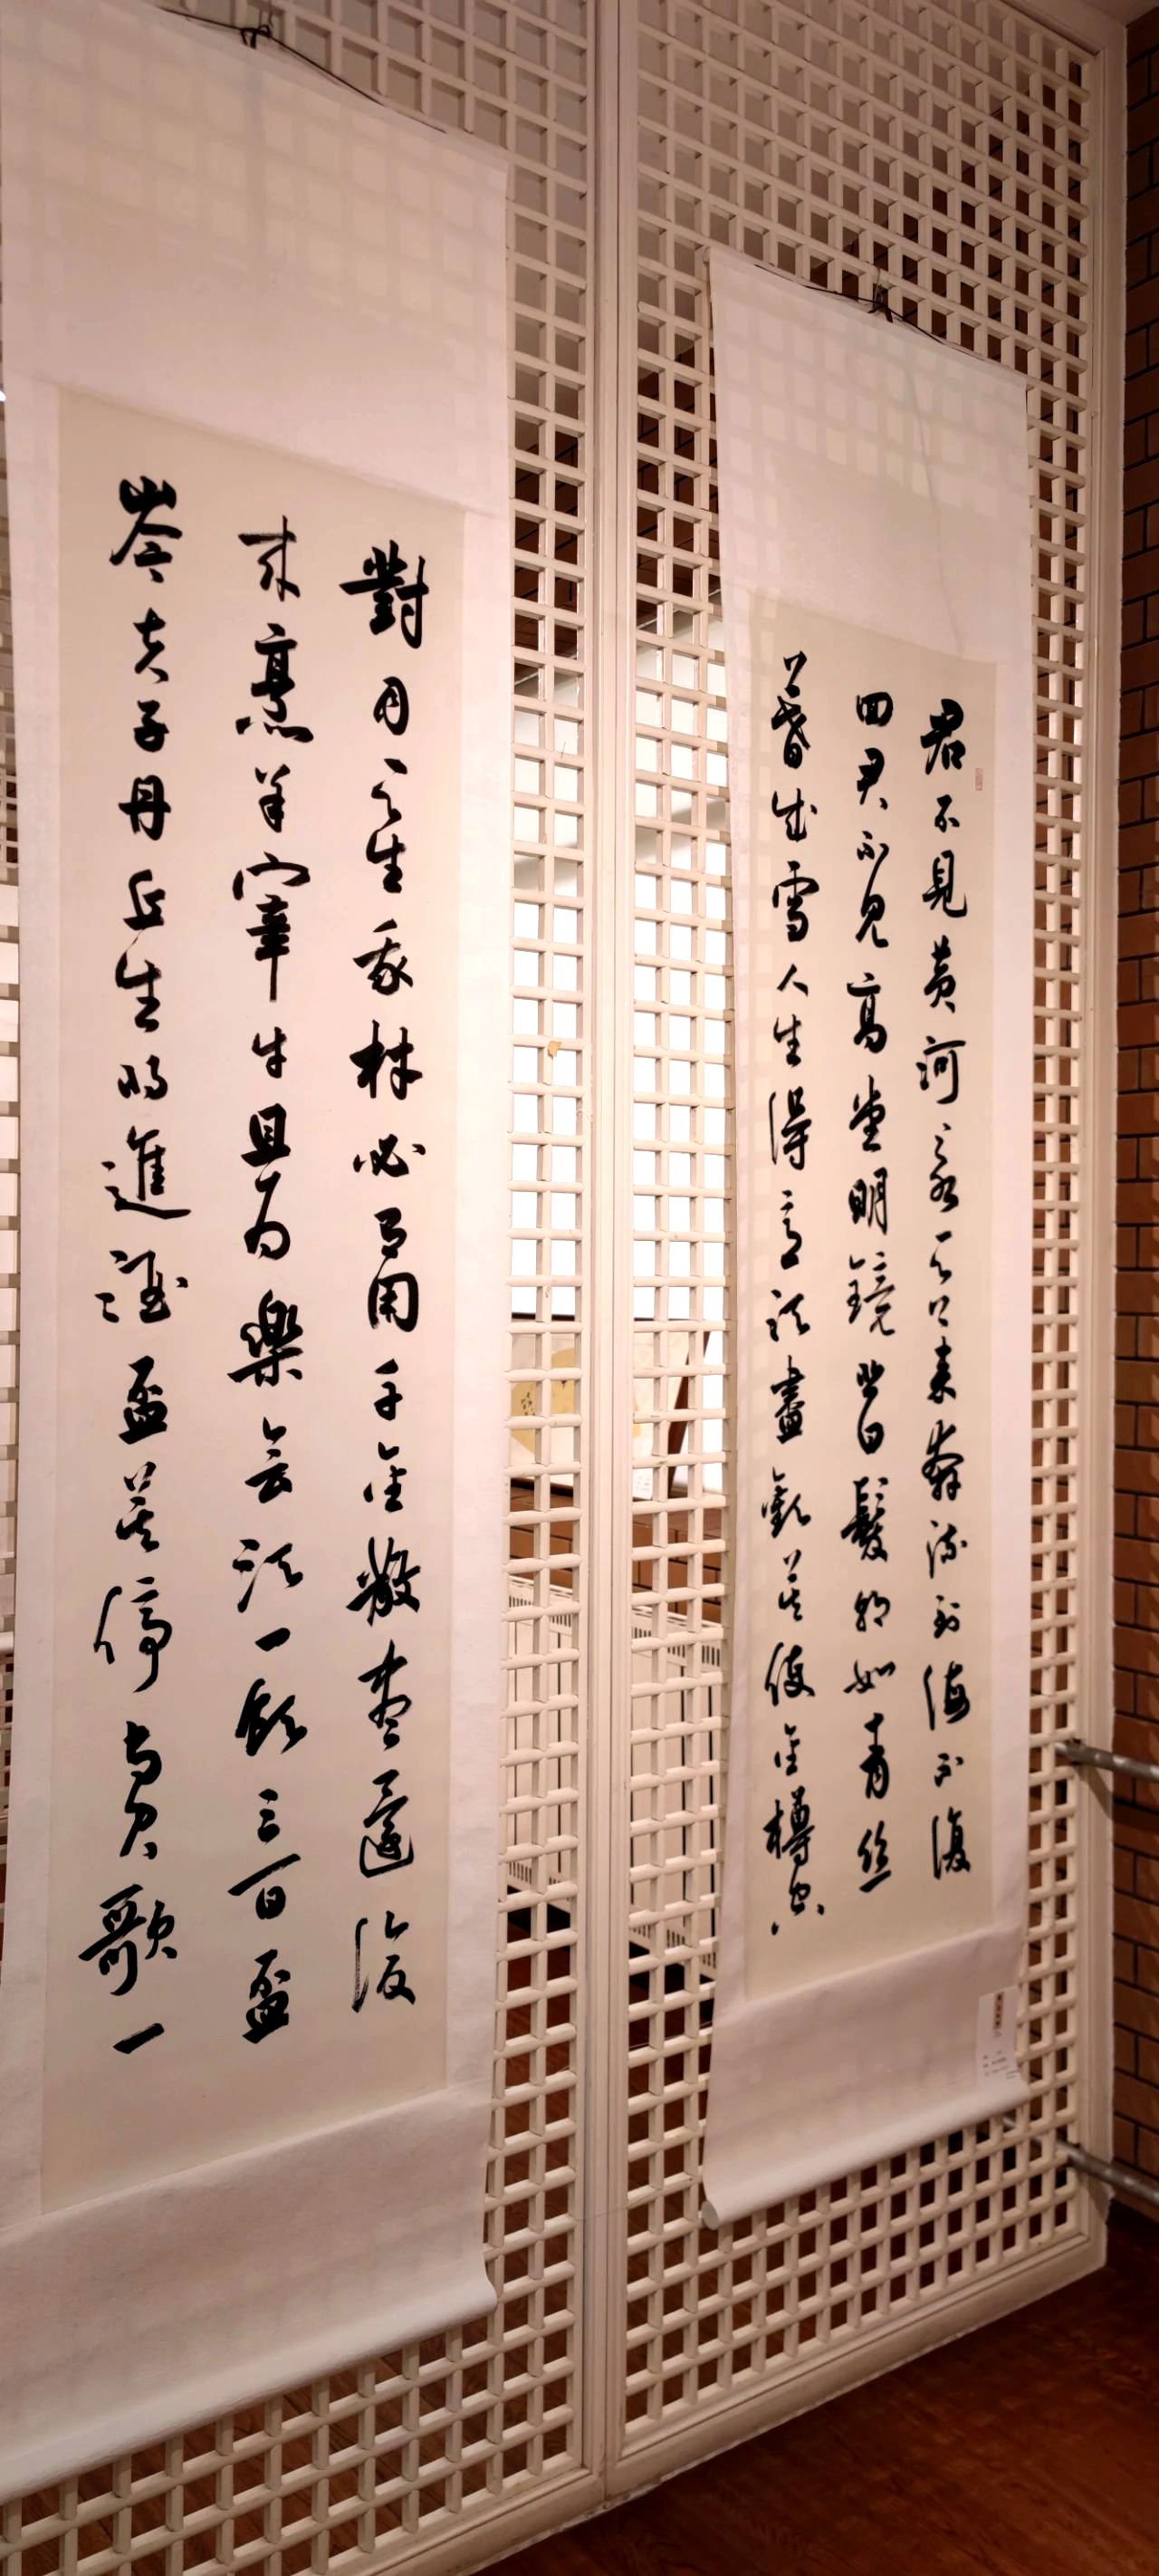 君不見黄河之水天上来奔流到海不復
回君不見高堂明鏡悲白髮朝如青丝
暮成雪人生得意須盡歡莫使金樽空
對月天生我材必有用千金散盡還復
来烹羊宰牛且为樂会須一飲三百盃
岑夫子丹丘生将進酒盃莫停与君歌一